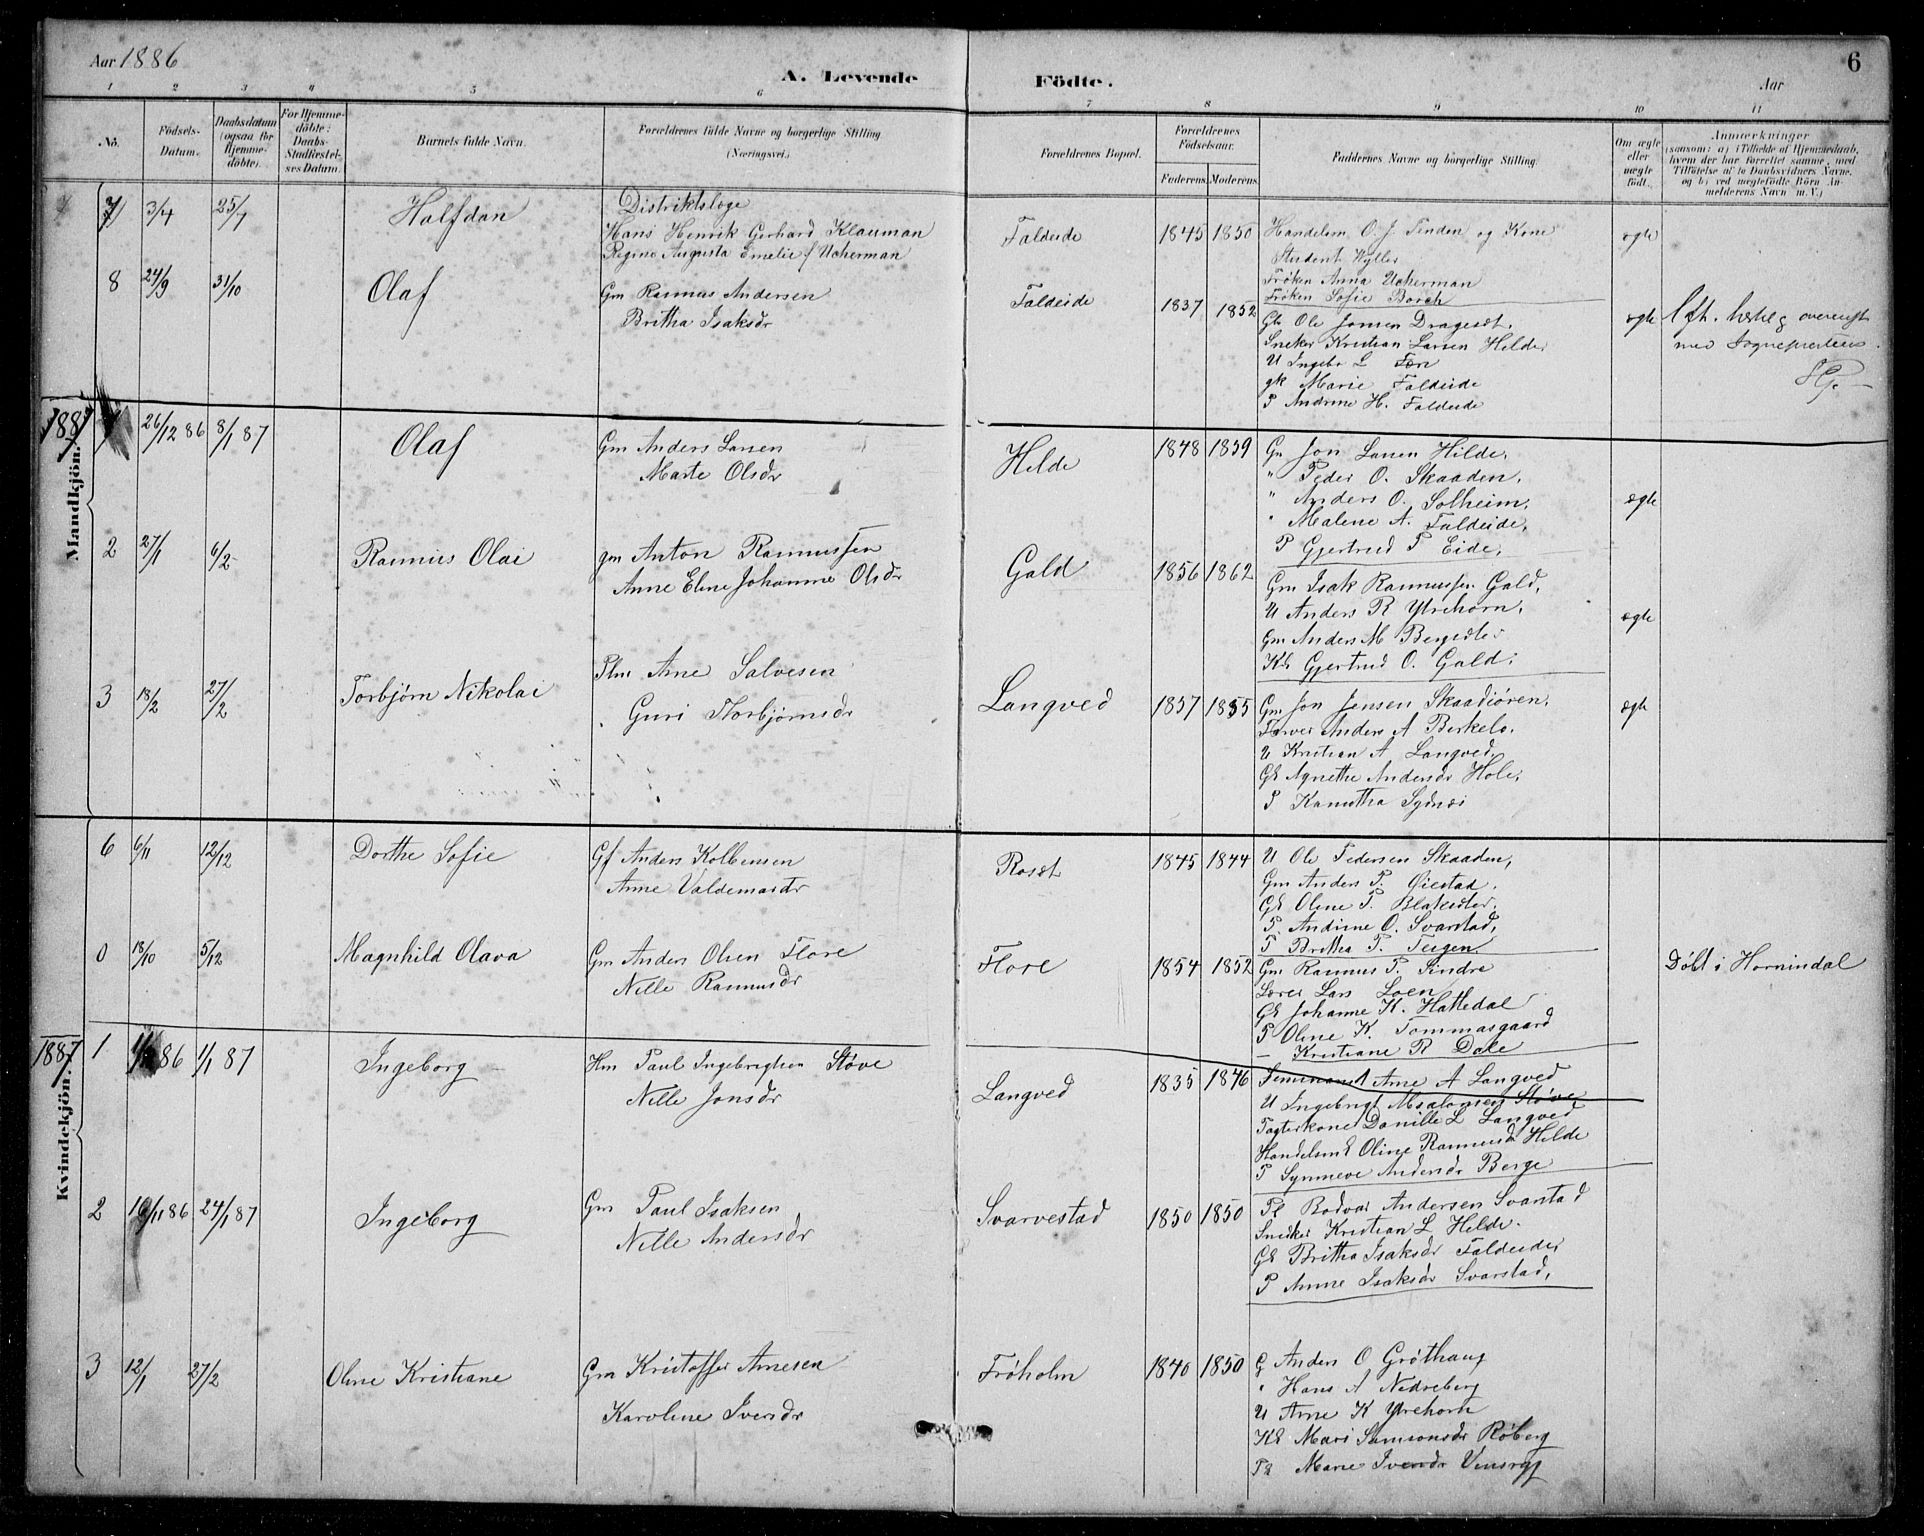 Aar 1886
A. Levende Födte.
Aar
6
1 2 3 4 5 6 7 8 9 10 11
No.
Födsels-Datum.
Daabsdatum (ogsaa for Hjemme-döbte).
For Hjemme-döbte: Daabs-Stadfæstel-ses Datum.
Barnets fulde Navn.
Forældrenes fulde Navne og borgerlige Stilling
(Næringsvei.)
Forældrenes Bopæl.
Forældrenes Födselsaar.
Faderens. Moderens.
Faddernes Navne og borgerlige Stilling.
Om ægte eller uægte født.
Anmærkninger
(saasom: a) i Tilfælde af Hjemmedaab, hvem der har forrettet samme, med Tilföielse af to Daabsvidners Navne, og b) ved uægtefödte Börn An-melderens Navn m. V.)
Mandkjön.
7 3/4 25/7 Halfdan
Distriktslæge
Hans Henrik Gerhard Klauman
Regine Augusta Emelie f Ucherman
Faldeide 1845 1850
Handelsm O. J. Tenden og Kone
Student Nyller
Frøken Anna Ucherman
Frøken Sofie Borch
ægte
8 24/9 31/10 Olaf
Gm Rasmus Andersen
Britha Isaksdr
Faldeide 1837 1852
Gk Ole Jonsen Dragesæt.
Sneker Kristian Larsen Hilde
U Ingebr L Færn
gk Marie Faldeide
P Andrine H. Faldeide
ægte
med Sognepresten
1887
26/12 86 8/1 87 Olaf
Gm Anders Larsen
Marte Olsdr
Hilde 1848 1859
Gm Jon Larsen Hilde,
" Peder O. Skaaden,
" Anders O. Solheim,
" Malene A. Faldeide,
P Gjertrud P Eide,
ægte
2 27/1 6/2 Rasmus Olai
gm Anton Rasmussen
Anne Eline Johanne Olsdr
Gald 1856 1862
Gm Isak Rasmussen Gald,
U Anders R Ytrehorn,
Gm Anders M Bergsæter
Kk Gjertrud O. Gald.
ægte
3 18/2 27/2 Torbjørn Nikolai
Plm Arne Salvesen
Guri Thorbjørnsdr
Langved 1857 1855
Gm Jon Jensen Skaadiøren,
Farver Anders A Berkelo,
U Kristian A Langved,
Gk Agnethe Andersdr Hole,
P Kanutha Sydnæs
ægte
Kvindekjön.
6 6/11 12/12 Dorthe Sofie
Gf Anders Kolbensen
Anne Valdemarsdr
Rosæt 1845 1844
U Ole Pedersen Skaaden,
Gm Anders P. Øiestad.
Gk Oline P. Blaksæter.
P. Andrine O. Svarstad,
P Britha P. Teigen
0 18/10 5/12 Magnhild Olava
Gm Anders Olsen Flore
Nille Rasmusdr
Flore 1854 1852
Gm Rasmus P. Sindre
Lærer Lars Loen
Gk Johanne K. Hattedal
P Oline K. Tommasgaard
– Kristiane R Dale
Døbt i Hornindal
1887
1 86 1/1 87 Ingeborg
Hm Paul Ingebrigtsen Støve
Nille Jonsdr
Langved 1835 1846
Seminarist Arne A Langved
U Ingebrigt Absalonsen Støve,
Pagterkone Danille L Langved
Handelsmk Oline Rasmusd Hilde
P Synneve Andersdr Berge
2 16/11 86 24/1 87 Ingeborg
Gm Paul Isaksen
Nille Andersdr
Svarvestad 1850 1850
Pl Bodvar Andersen Svarstad
Snedker Kristian L Hilde.
Gk Britha Isaksdr Faldeide,
P Anne Isaksdr Svarstad,
3 12/1 27/2 Oline Kristiane
Gm Kristoffer Arnesen
Karoline Iversdr
Frøholm 1840 1850
G Anders O Grøthaug
" Hans A Nedreberg
U Arne K Ytrehorn
Kk Mari Samsonsdr Røberg
Marie Iversdr